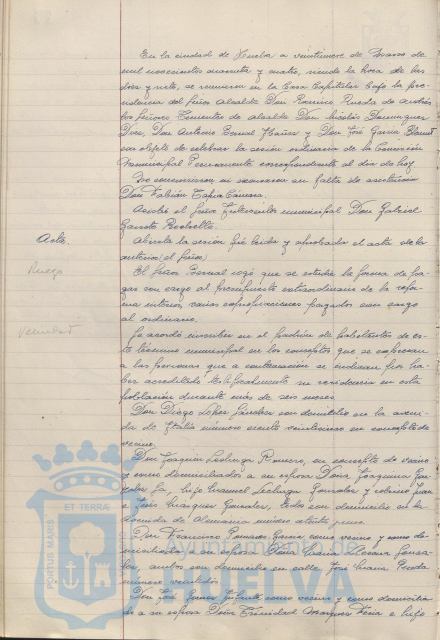 En la ciudad de Huelva a veintinueve de Marzo de
mil novecientos cuarenta y cuatro, siendo la hora de las
doce y meta, se reunieron en la Casa Capitular bajo la pre-
sidencia del Señor Alcalde Don Ramiro Rueda de
los Señores Tenientes de alcalde Don Nicolás Domínguez
Don Antonio Bernal Ibáñez y Don José García
con objeto de celebrar la sesión ordinaria de la Comisión
Municipal Permanente correspondiente al día de hoy
No concurrieron ni excusaron su falta de asistencia
Don Fabián Tapia Cámara.
Asiste el Señor Interventor municipal Don Gabriel
Gaosto Rebollo.
Acta.
Abierta la sesión fué leída y aprobada el acta de la
anterior
Ruego
El Señor Bernal rogó que se estudie la forma de pa-
gar con cargo al presupuesto extraordinario de la refor-
ma interior varias expropiaciones pagadas con cargo
al ordinario.
Vecindad
Se acordó inscribir en el padrón de habitantes de es-
te término municipal en los conceptos que se expresan
a las personas que a continuación se indican por ha-
ber acreditado su residencia en esta
población durante más de seis meses
Don Diego López Sánchez con domicilio en la aveni-
da de Italia número ciento veintiuno en concepto de
vecino.
Don Joaquín Romero, en concepto de vecino
y como domiciliados a su esposa Doña Joaquina Gon-
zález, hijo Manuel González y
José Márquez González, todos con domicilio en la
Avenida de Alemania número
Don Francisco García como vecino y como do-
miciliada su esposa Doña María Gonzá-
lez, ambos con domicilio en calle José María Pereda
número veintidós
Don José Gómez Infante como vecino y como domicilia-
da a su esposa Doña Trinidad Márquez Vera e hijo
PORTUS MARIS
ET TERRAE
Ayuntamiento de
HUELVA